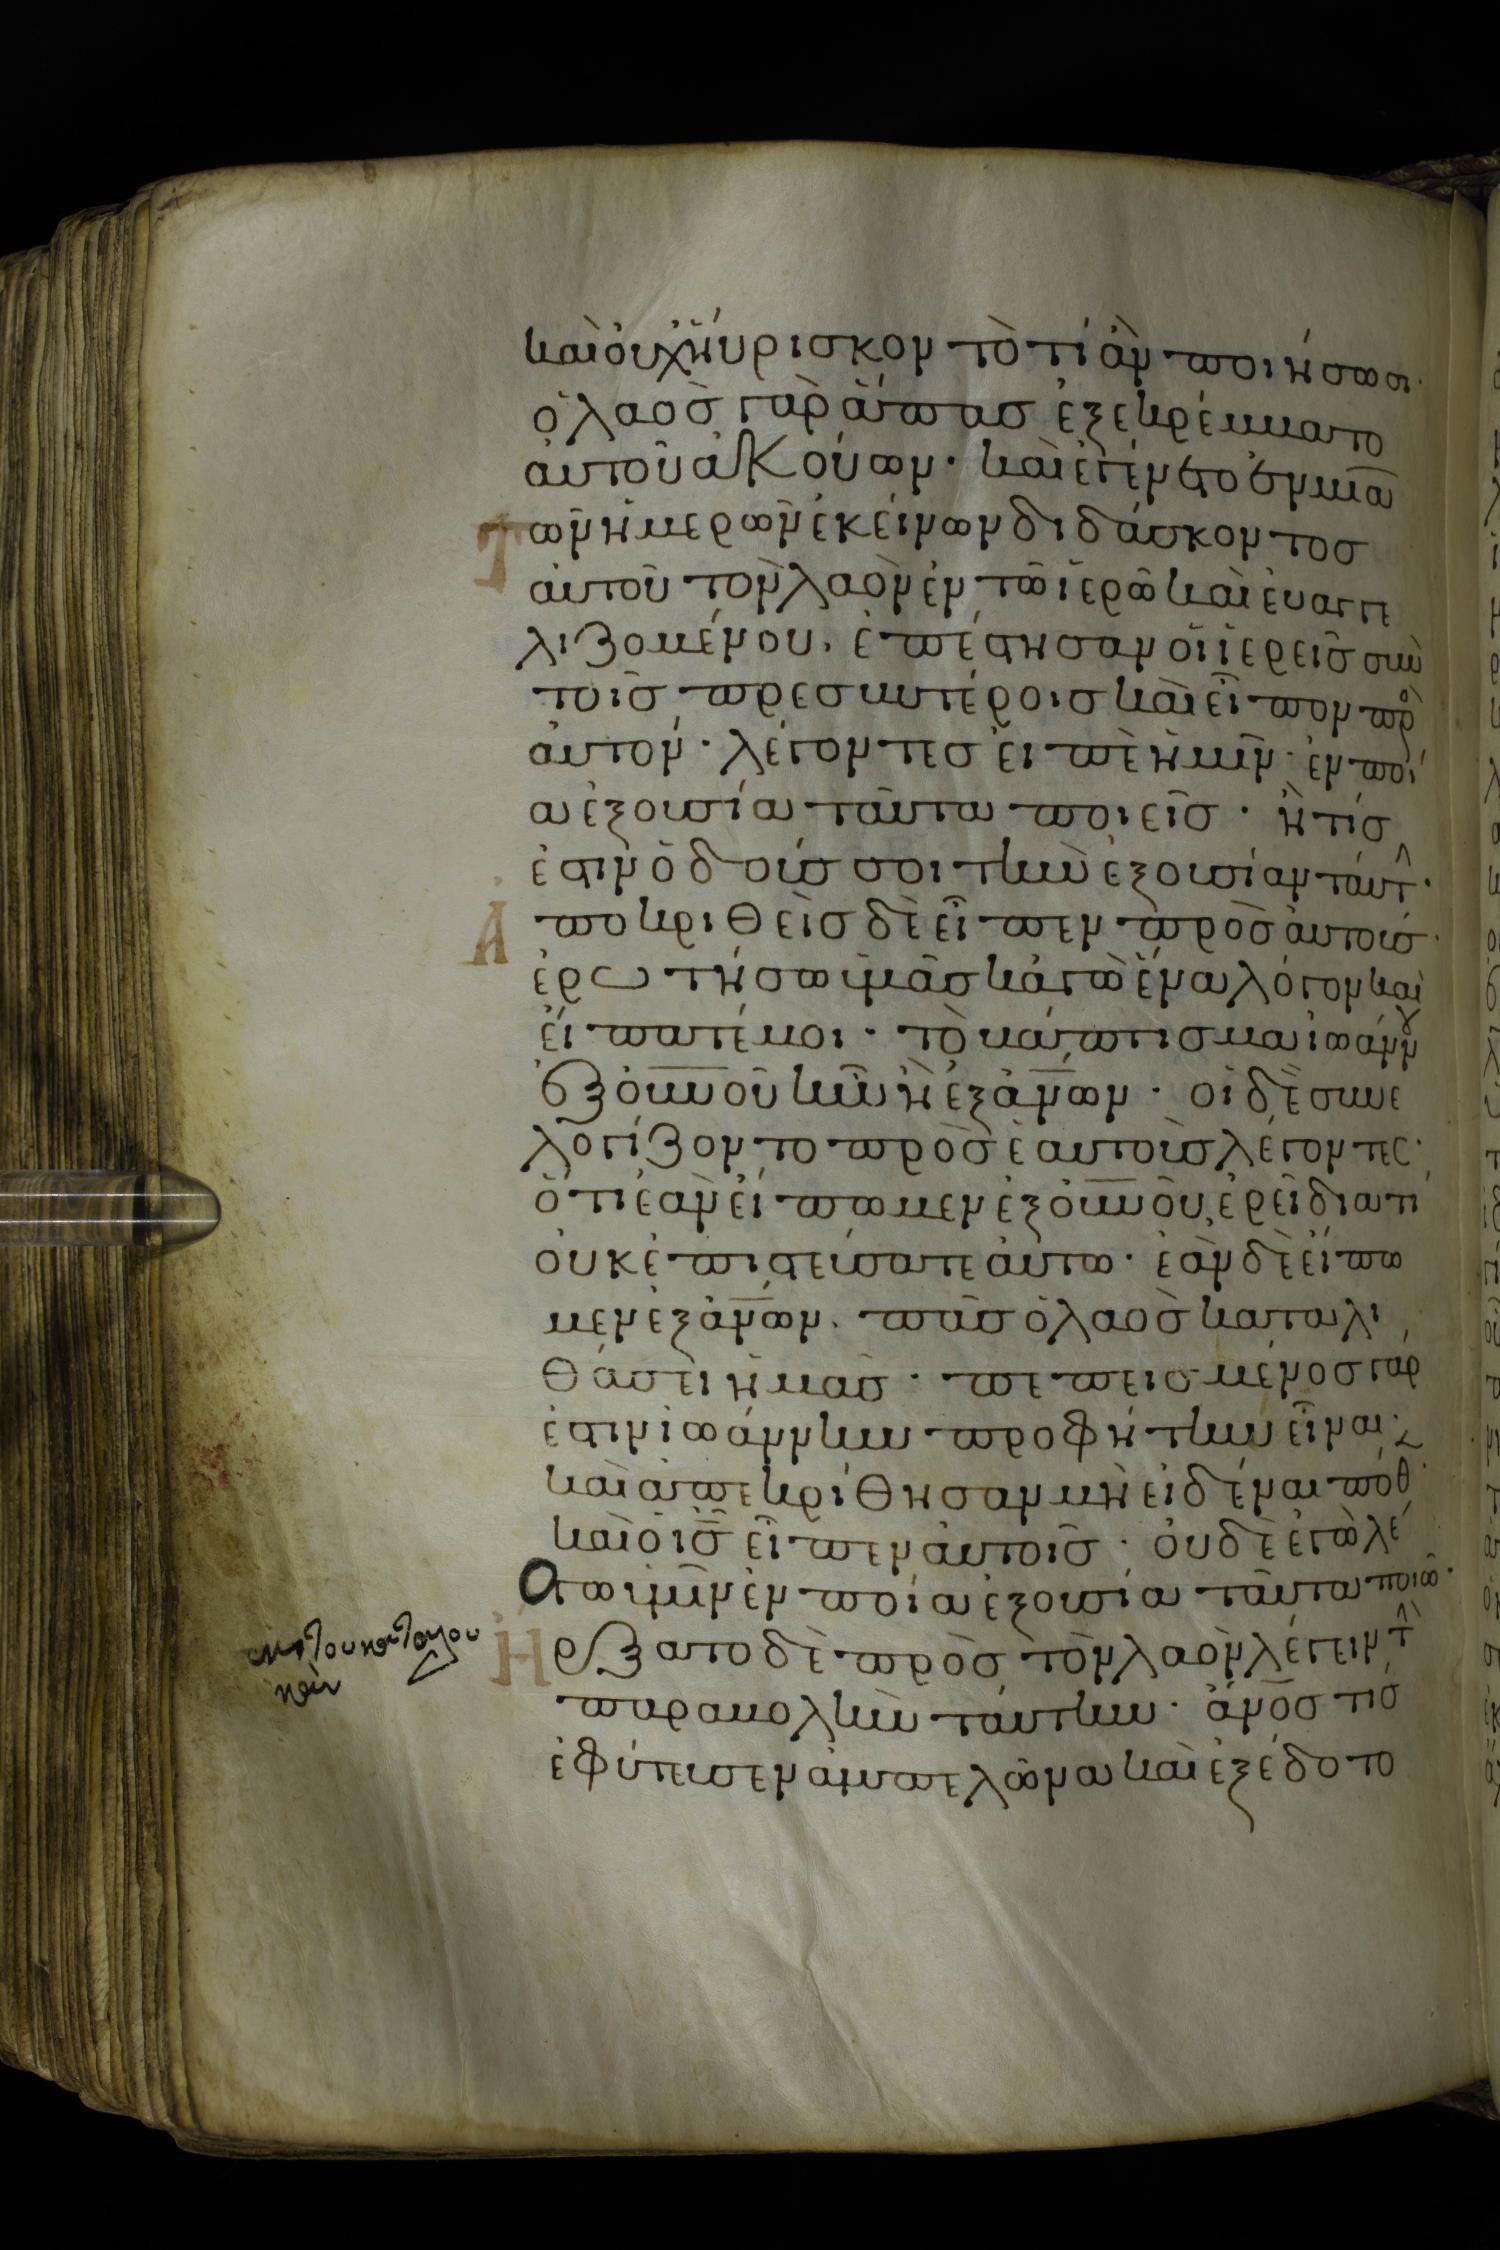 καὶ οὐχ ηὕρισκον τὸ τί ἂν ποιήσωσι·
ὁ λαὸς γὰρ ἅπας ἐξεκρέματο
αὐτοῦ ἀκούων· καὶ ἐγένετο ἐν μιᾶ
τῶν ἡμερῶν ἐκείνων διδάσκοντος
αὐτοῦ τὸν λαὸν ἐν τῶ ἱερῶ καὶ εὐαγγε
λιζομένου, ἐπέστησαν οἱ ἱερεῖς σὺν
τοῖς πρεσβυτέροις καὶ εἶπον πρὸ
αὐτόν· λέγοντες εἰπὲ ἡμῖν· ἐν ποί
α ἐξουσία ταῦτα ποιεῖς· ἢ τίς
ἐστιν ὁ δούς σοι τὴν ἐξουσίαν ταύτ̂·
Ἀποκριθεὶς δὲ εἶπεν πρὸς αὐτούς·
ἐρωτήσω ὑμᾶς κἀγὼ ἕνα λόγον καὶ
εἴπατέ μοι· τὸ βάπτισμα ἰωάννου
ἐξ οὐνοῦ ἦν ἢ ἐξ ἀνων· οἱ δὲ συνε
λογίζοντο πρὸς ἑαυτοὺς λέγοντες·
ὅτι ἐὰν εἴπωμεν ἐξ οὐνοῦ, ἐρεῖ διατί
οὐκ ἐπιστεύσατε αὐτῶ· ἐὰν δὲ εἴπω
μεν ἐξ ἀνων· πᾶς ὁ λαὸς καταλι
θάσει ἡμᾶς· πεπεισμένος γάρ
ἐστιν ἰωάννην προφήτην εἶναι·
καὶ ἀπεκρίθησαν μὴ εἰδέναι πόθ·
καὶ ὁ ις εἶπεν αὐτοῖς· οὐδὲ ἐγὼ λέ
γω ὑμῖν ἐν ποία ἐξουσία ταῦτα ποιῶ·
Ἤρξατο δὲ πρὸς τὸν λαὸν λέγειν τ̂
παραβολὴν ταύτην· ἄνος τις
ἐφύτευσεν ἀμπελῶνα καὶ ἐξέδοτο